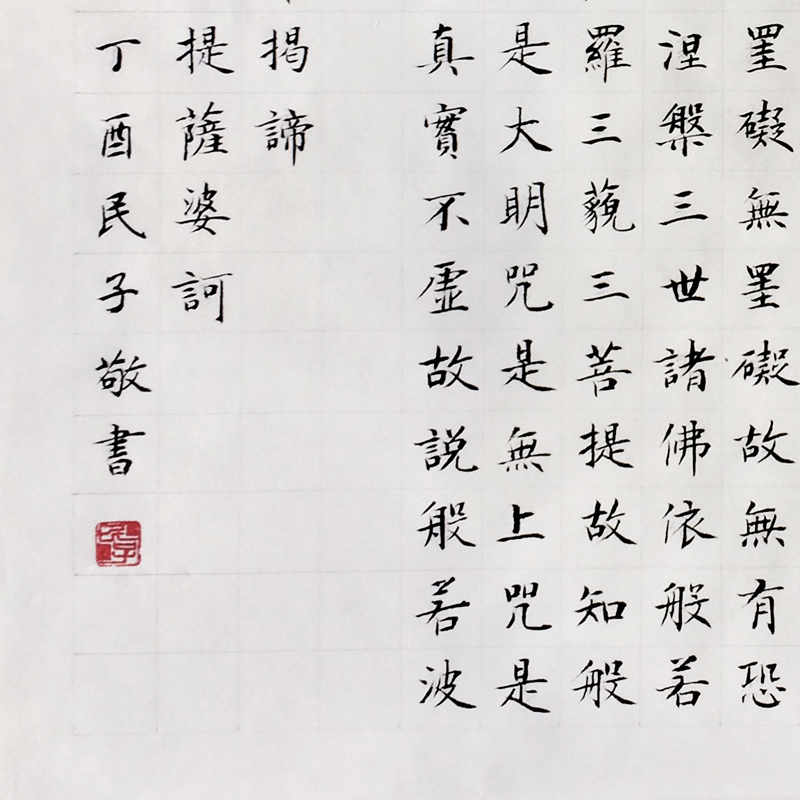 罣礙無罣礙故無有恐
涅槃三世諸佛依般若
羅三藐三菩提故知般
是大明咒是無上咒是
真實不虛故説般若波
揭諦
提薩婆訶
丁酉民子敬書